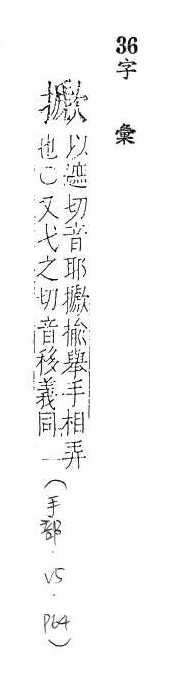 36字 彙
擨
以遮切音耶擨揄舉手相弄
也○又弋之切音移義同一
(手部．V5．P64)